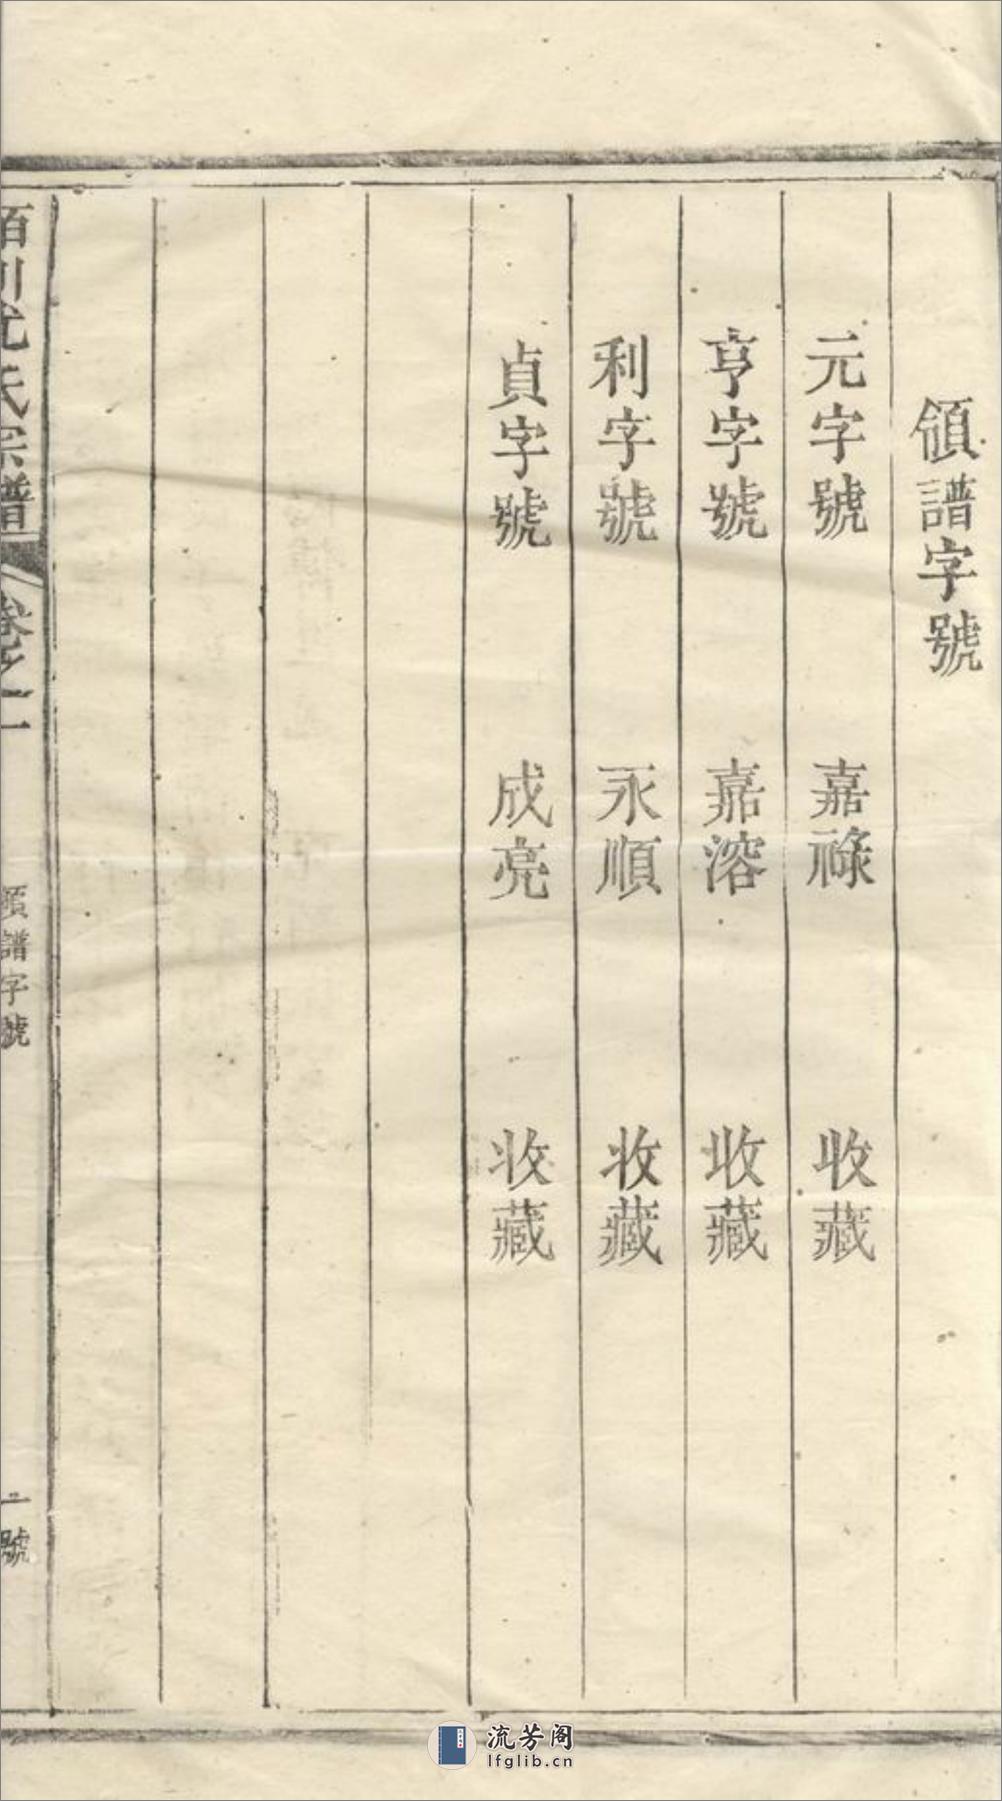 領譜字號
元字號 嘉祿 收藏
亨字號 嘉溶 收藏
利字號 永順 收藏
貞字號 成亮 收藏
氏宗譜 卷之一 領譜字號 一號
流芳阁
lfglib.cn